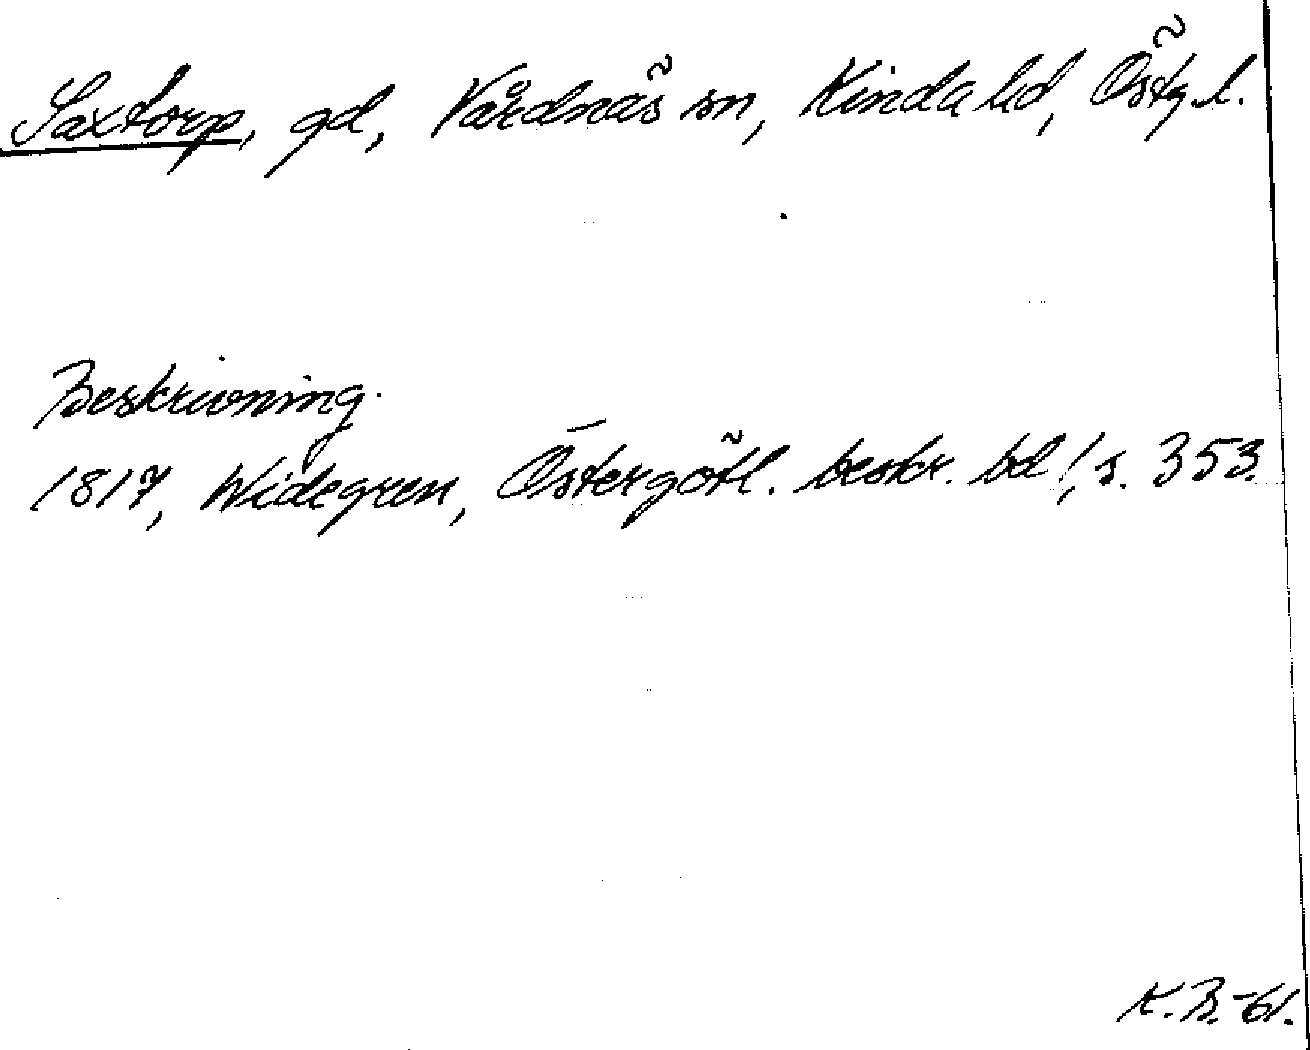 Saxtorp, gd, Vårdnäs sn, Kinda hd, Östg. l.
Beskrivning.
1817, Widegren, Östergötl. beskr. bd 1, s. 353.
K.B.-61.